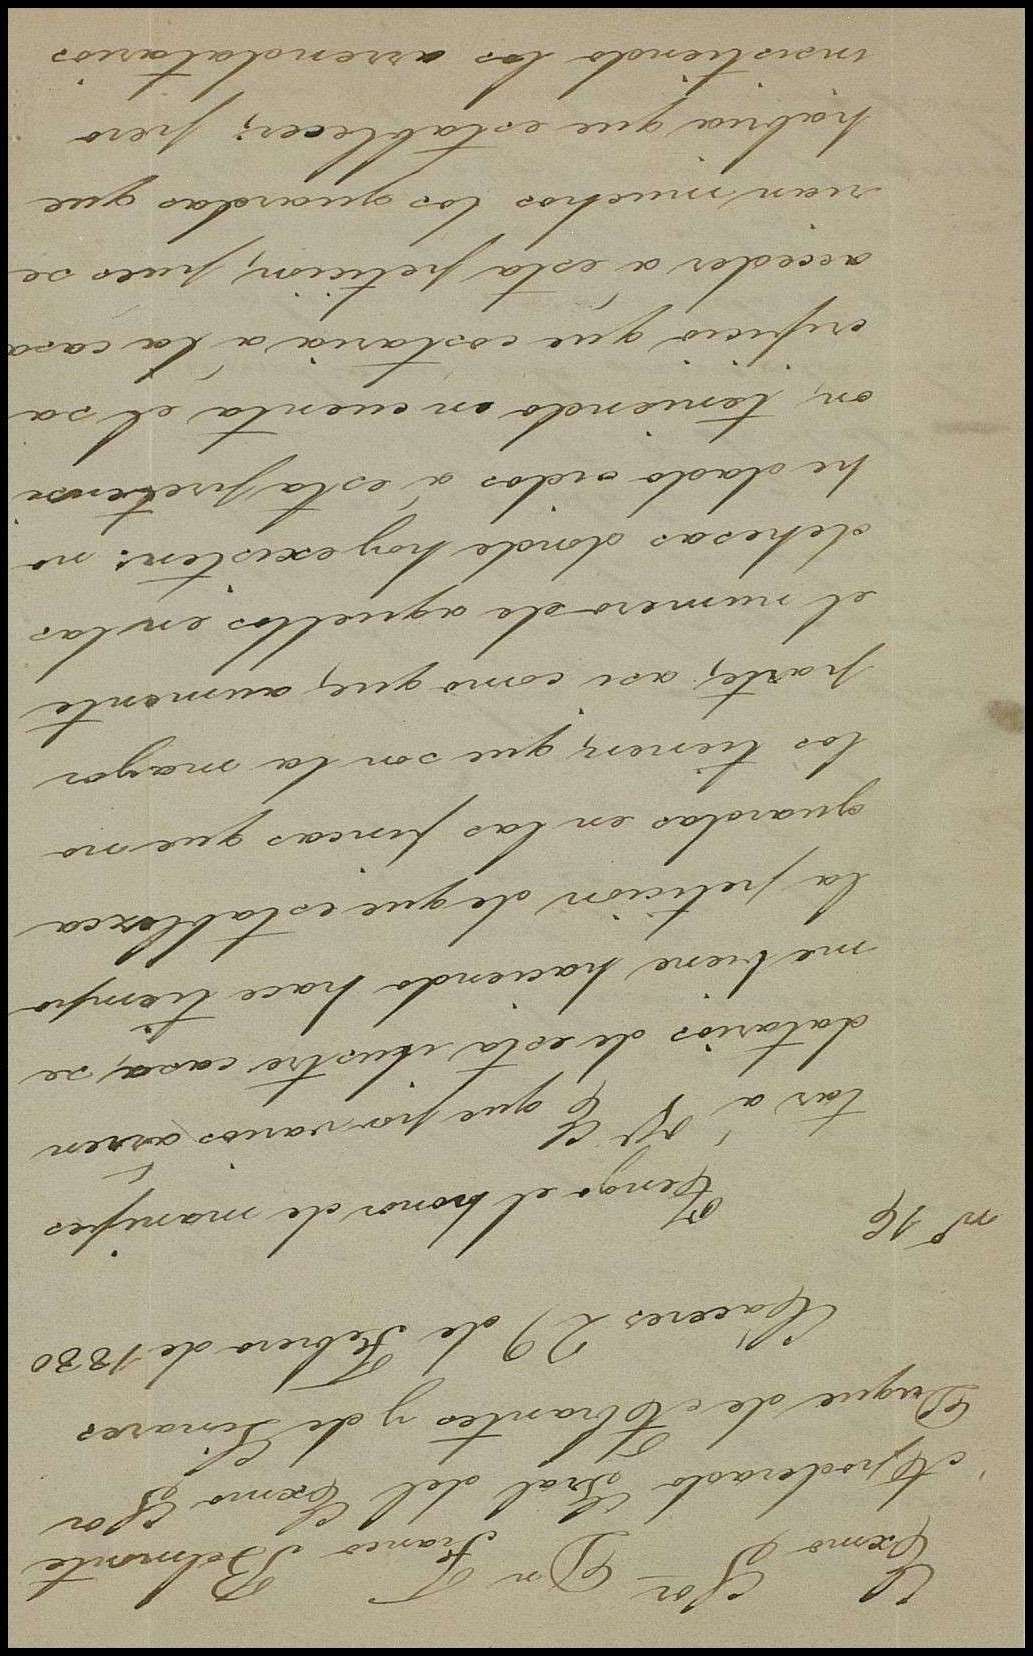 Exmo Sor Dn Franco Belmonte
Apoderado Gral del Exmo Sor
Duque de Abrantes y de Linares
Caceres 29 de Febrero de 1880
nº 16
Tengo el honor de manifes
tar á V E que por varios arren
datarios de esta ilustre casa, se
me biene haciendo hace tiempo
la peticion de que establezca
guardas en las fincas que no
los tienen, que son la mayor
parte, asi como que, aumente
el numero de aquellos en las
dehesas donde hoy existen: no
he dado oidos á esta pretensi
on, teniendo en cuenta el sa
crificio que costaria á la casa
acceder á esta peticion, pues se
rian muchos los guardas que
habria que establecer; pero
insistiendo los arrendatarios